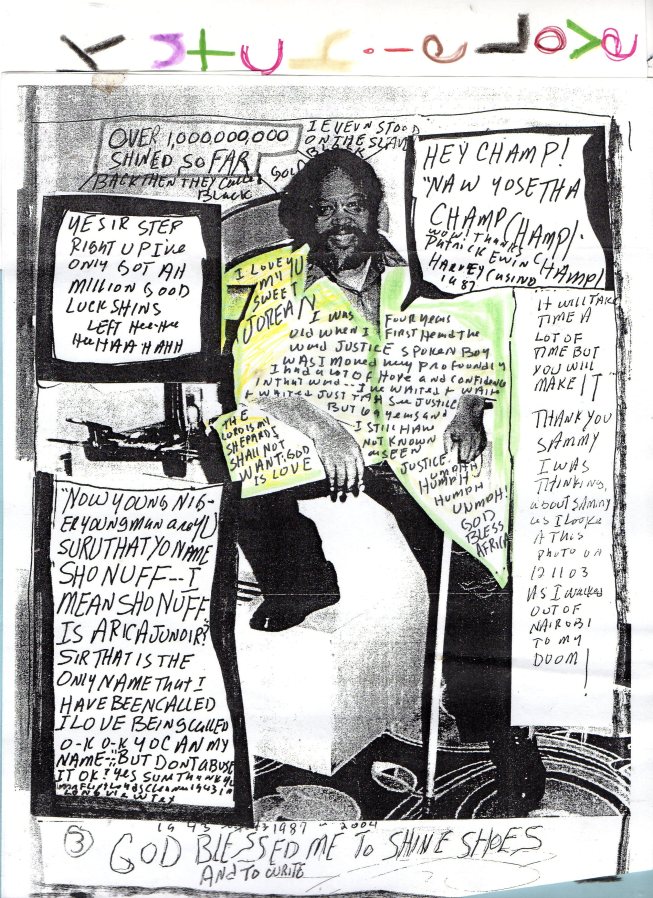 OVER 1,000,000,000
SHINED SO FAR
BACK THEN THEY
BLACK
I EVEVN STOOD
ON THE
HEY CHAMP!
"NAW YOSETHA
CHAMP CHAMP!
WOW! THANKS
PATRICK EWIN CHAMP!
HARVEY CASINO
1987
YESIR STEP
RIGHT UP IVE
ONLY GOT AH
MILLION GOOD
LUCK SHINS
LEFT HEE-HEE
HEE HAA HAHH
I LOVE YU
MY
SWEET
JOREAN
I WAS FOUR YEARS
OLD WHEN I FIRST HEARD THE
WORD JUSTICE SPOKEN BOY
WAS I MOVED VERY PROFOUNDLY
I HAD A LOT OF HOPE AND CONFIDENCE
IN THAT WORD--I'VE WAITED & WAITE
& WAITED JUST TAH SEE JUSTICE
BUT 69 YEARS AND
I STILL HAW
NOT KNOWN
OR SEEN
JUSTICE!
HUMPHH
HUMPH!
HUMPH
UNMPH!
GOD
BLESS
AFRICA
THE
LORD IS MY
SHEPARD I
SHALL NOT
WANT: GOD
IS LOVE
IT WILL TAKE
TIME A
LOT OF
TIME BUT
YOU WILL
MAKE IT
THANK YOU
SAMMY
I WAS
THINKING,
ABOUT SAMMY
AS I LOOKE
A THIS
PHOTO ON
12 11 03
AS I WALKED
OUT OF
NAIROBI
TO MY
DOOM!
"NOW YOUNG NIG-
ER YOUNG MAN ARE YU
SURU THAT YO NAME
SHO NUFF--I
MEAN SHO NUFF
IS ARICA JUNOIR?
SIR THAT IS THE
ONLY NAME THAT I
HAVE BEEN CALLED
I LOVE BEING CALLED
O-K O-K YO CAN MY
NAME--BUT DONT ABUSE
IT OK? YES SUH THANK YU
1943 IN
LONGVIEW TEX
1943 1987 - 2004
③ GOD BLESSED ME TO SHINE SHOES
AND TO WRITE